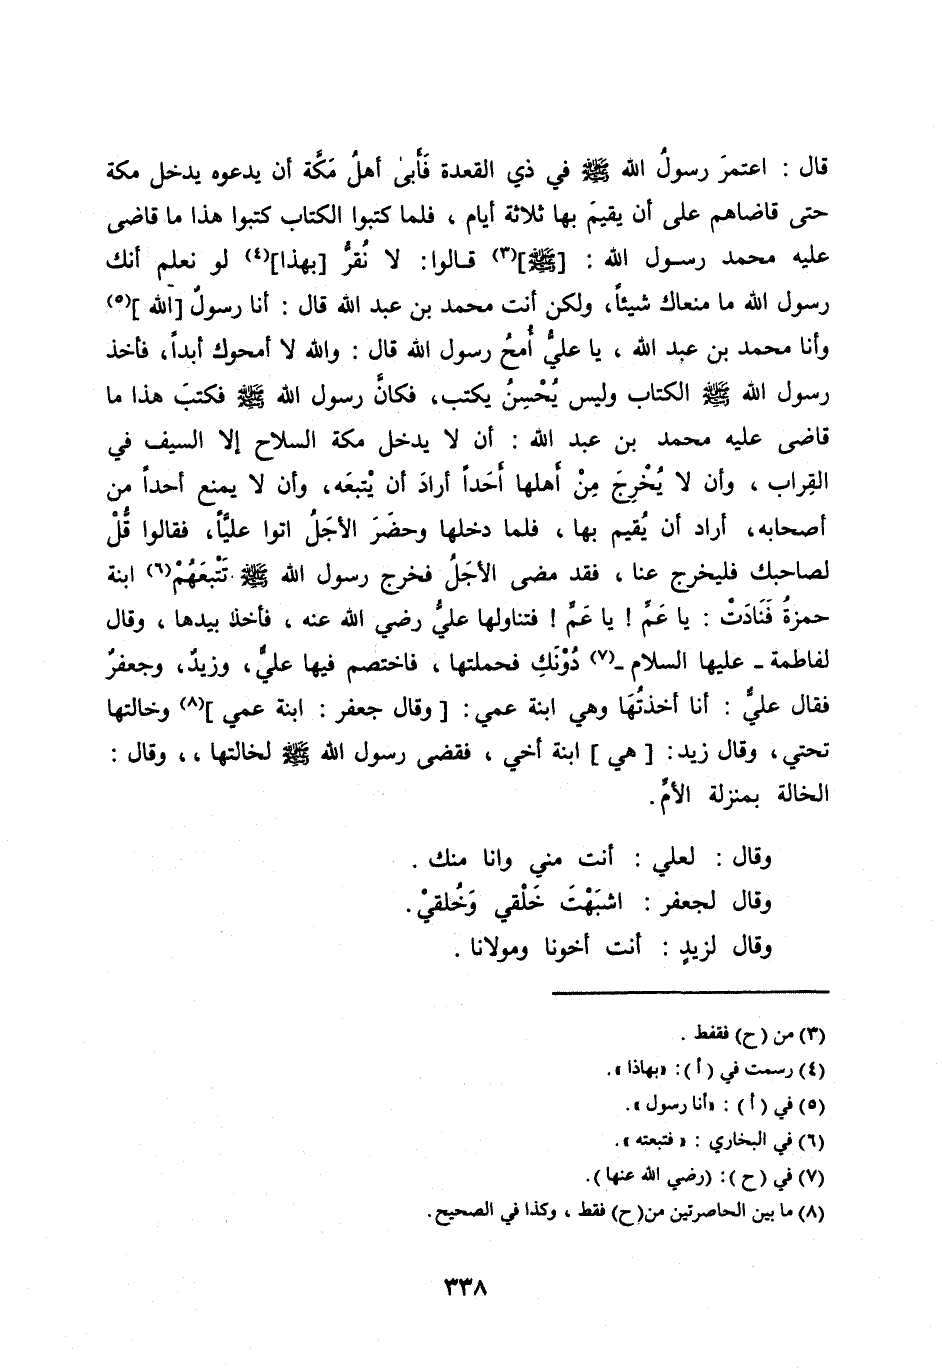 قال : اعتمرَ رسولُ الله ﷺ في ذي القعدة فَأَبىٰ أهلُ مَكَّة أن يدعوه يدخل مكة
حتى قاضاهم على أن يقيمَ بها ثلاثة أيام ، فلما كتبوا الكتاب كتبوا هذا ما قاضى
عليه محمد رسول الله : [ﷺ](٣) قالوا: لا نُقرُّ [بهذا](٤) لو نعلم أنك
رسول الله ما منعاك شيئاً، ولكن أنت محمد بن عبد الله قال : أنا رسولُ [الله ](٥)
وأنا محمد بن عبد الله ، يا عليُّ أُمحُ رسول الله قال : والله لا أمحوك أبداً، فأخذ
رسول الله ﷺ الكتاب وليس يُحْسِنُ يكتب، فكانَّ رسول الله ﷺ فكتبَ هذا ما
قاضى عليه محمد بن عبد الله : أن لا يدخل مكة السلاح إلا السيف في
القِراب ، وأن لا يُخْرِجَ مِنْ أَهلها أَحَداً أرادَ أن يْتبعَه، وأن لا يمنع أحداً من
أصحابه، أراد أن يُقيم بها ، فلما دخلها وحضَرَ الأجَلُ اتوا عليَّاً، فقالوا قُلْ
لصاحبك فليخرج عنا ، فقد مضى الأجَلُ فخرج رسول الله ﷺ تَتْبعَهُمْ(٦) ابنة
حمزةُ فَنَادَتْ : يا عَمِّ ! يا عَمِّ ! فتناولها عليُّ رضي الله عنه ، فأخذ بيدها ، وقال
لفاطمة ـ عليها السلام ـ(٧) دُوْنَكِ فحملتها ، فاختصم فيها عليُّ، وزيدٌ، وجعفرٌ
فقال عليُّ : أنا أخذتُهَا وهي ابنة عمي: [ وقال جعفر : ابنة عمي ](٨) وخالتها
تحتي، وقال زيد: [ هي ] ابنة أخي ، فقضى رسول الله ﷺ لخالتها ،، وقال :
الخالة بمنزلة الأمِّ.
وقال : لعلي : أنت مني وانا منك .
وقال لجعفر : اشبَهْتَ خَلْقي وَخُلقيْ.
وقال لزيدٍ : أنت أخونا ومولانا .
(٣) من (ح) فقفط .
(٤) رسمت في ( أ ): «بهاذا».
(٥) في ( أ ) : «أنا رسول».
(٦) في البخاري : « فتبعته ».
(٧) في (ح ): (رضي الله عنها).
(٨) ما بين الحاصرتين من(ح) فقط ، وكذا في الصحيح.
٣٣٨